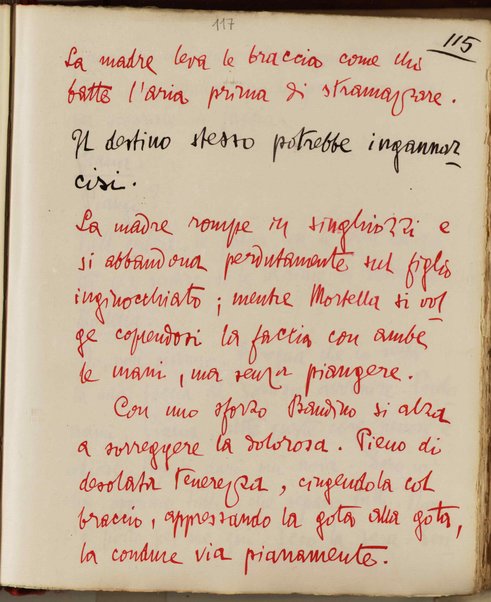 117
115
La madre leva le braccia come chi
batte l'aria prima di stramazzare.
Il destino stesso potrebbe ingannar
cisi.
La madre rompe in singhiozzi e
si abbandona perdutamente sul figlio
inginocchiato; mentre Mortella si vol
ge coprendosi la faccia con ambe
le mani, ma senza piangere.
Con uno sforzo Bandino si alza
a sorreggere la dolorosa. Pieno di
desolata tenerezza, cingendola col
braccio, appressando la gota alla gota,
la conduce via pianamente.